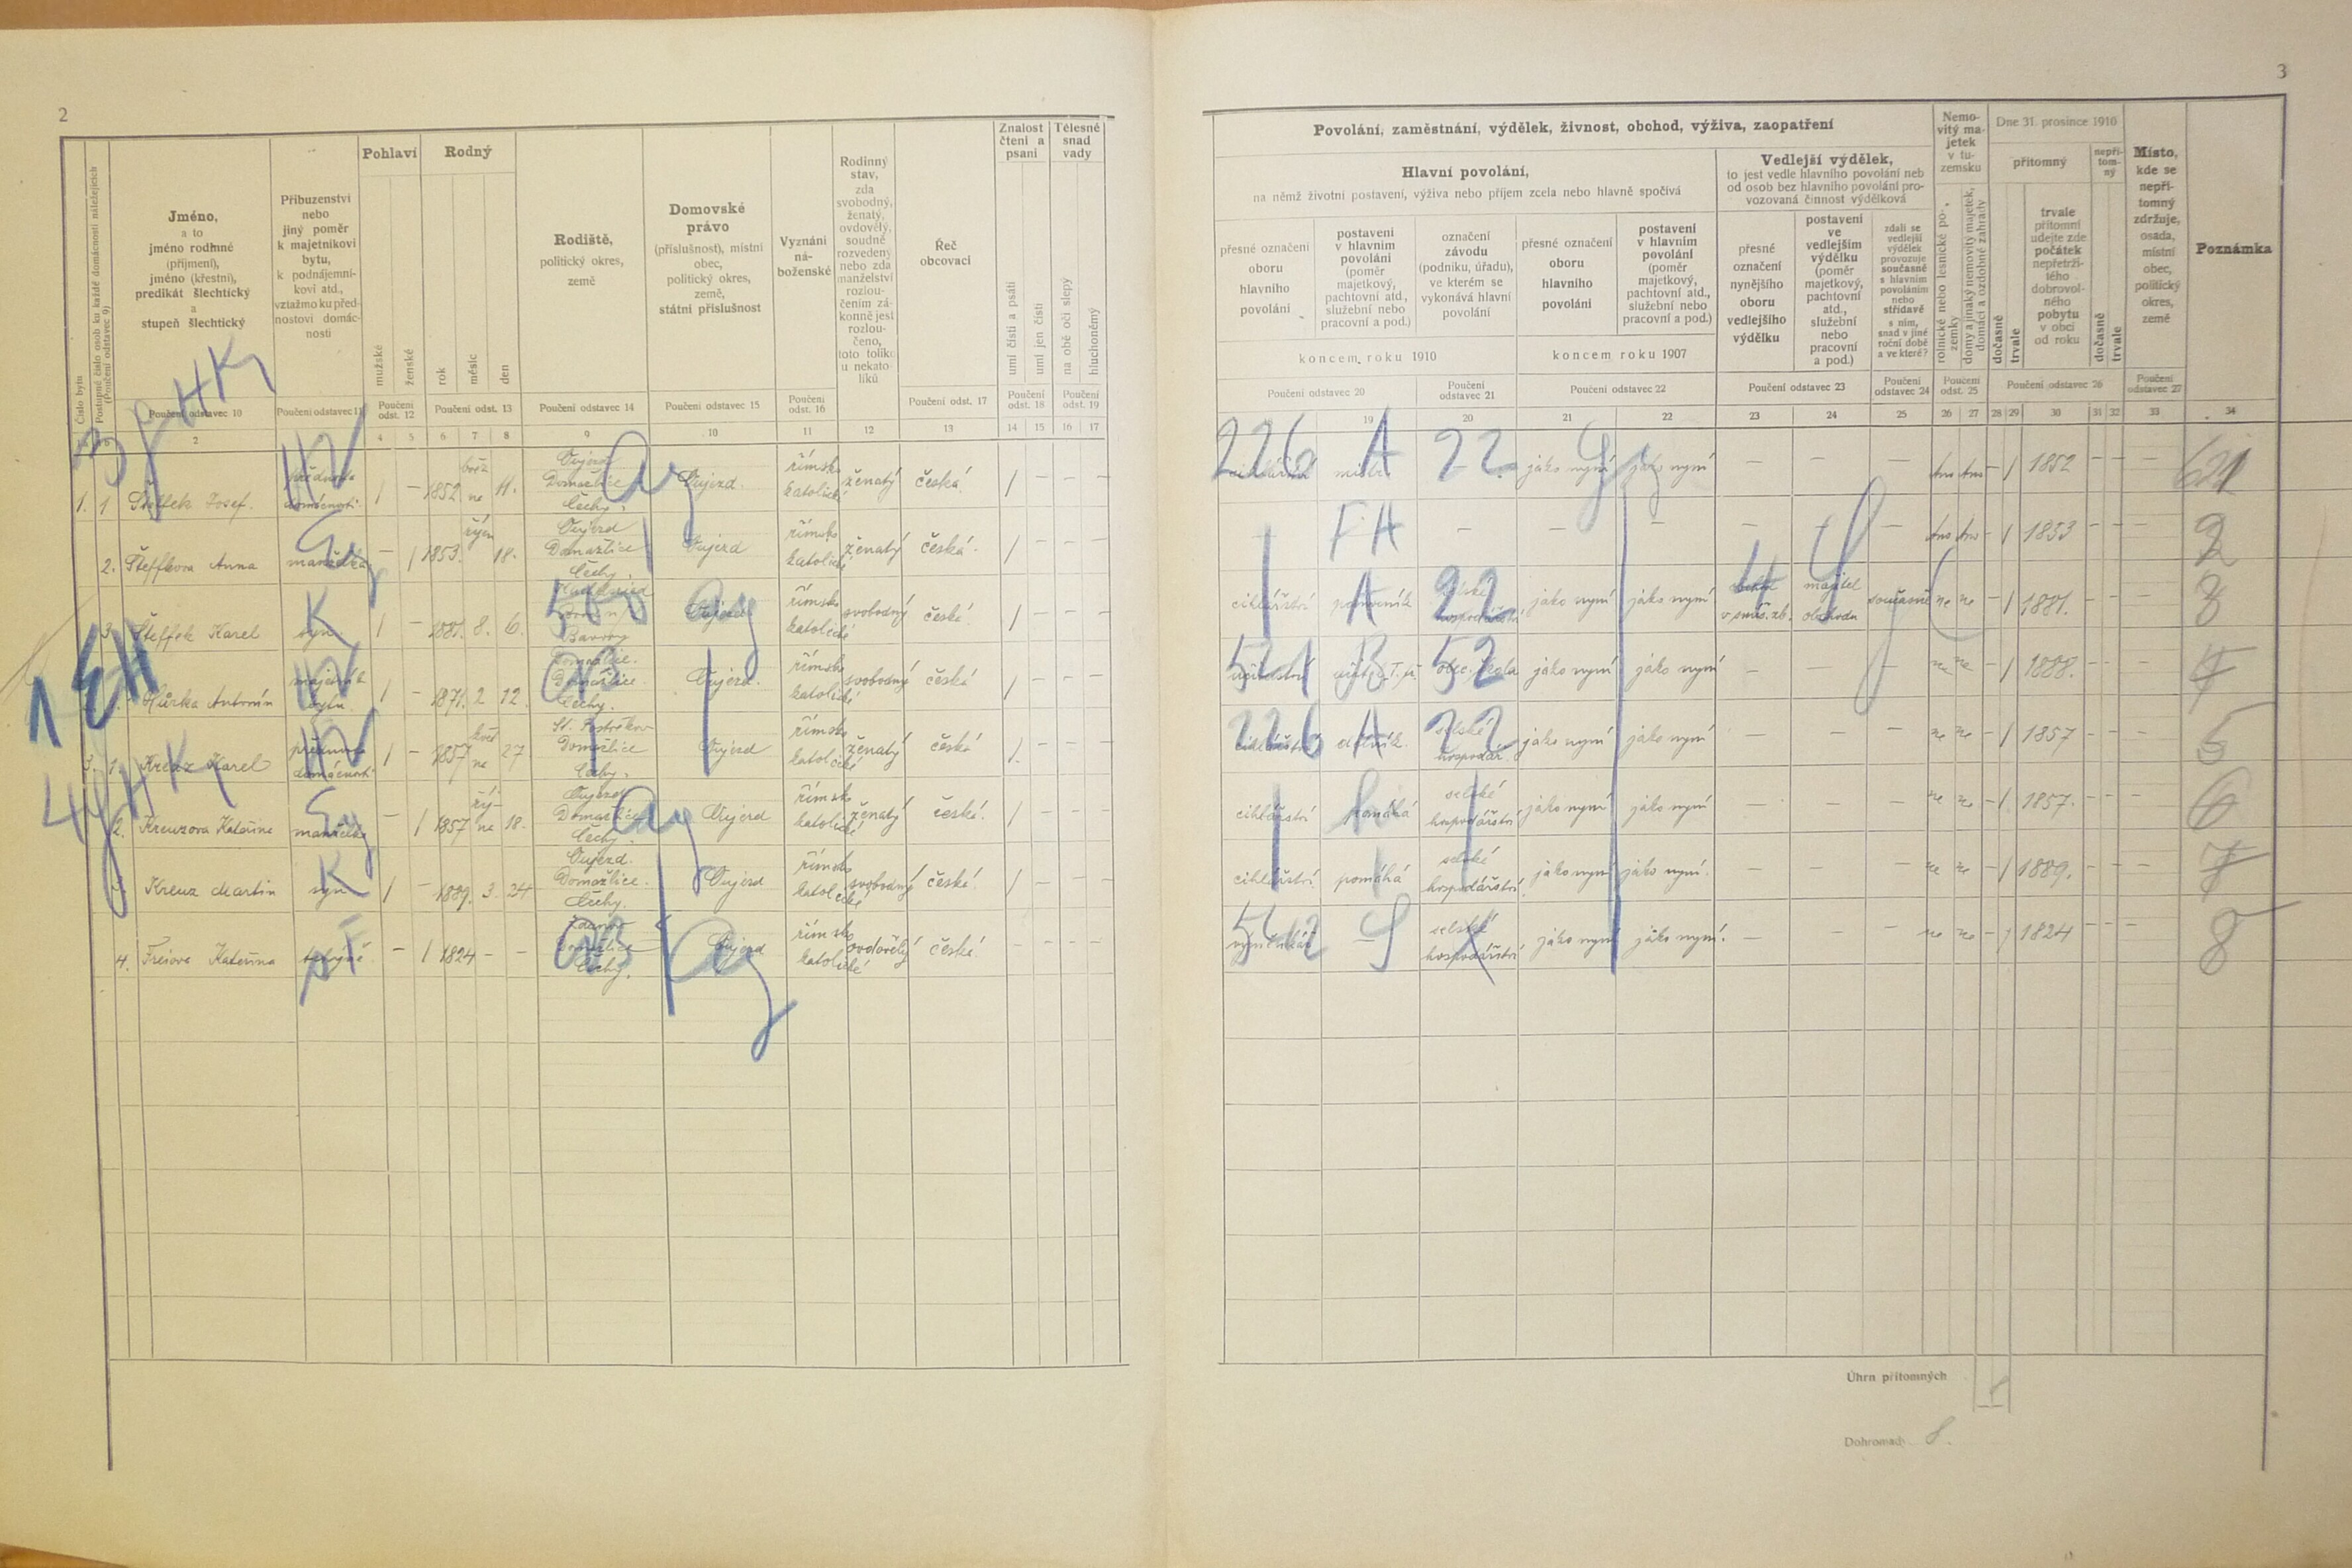 2
Číslo bytu
Postupné číslo osob ku každé domácnosti náležejících
(Poučení odstavec 9)
Jméno,
a to
jméno rodinné
(příjmení),
jméno (křestní),
predikát šlechtický
a
stupeň šlechtický
Poučení odstavec 10
Příbuzenství
nebo
jiný poměr
k majetníkovi
bytu,
k podnájemní-
kovi atd.,
vztažmo ku před-
nostovi domác-
nosti
Poučení odstavec 11
Pohlaví
mužské
ženské
Poučení
odst. 12
Rodný
rok
měsíc
den
Poučení odst. 13
Rodiště,
politický okres,
země
Poučení odstavec 14
Domovské
právo
(příslušnost), místní
obec,
politický okres,
země,
státní příslušnost
Poučení odstavec 15
Vyznání
ná-
boženské
Poučení
odst. 16
Rodinný
stav,
zda
svobodný,
ženatý,
ovdovělý,
soudně
rozvedený
nebo zda
manželství
rozlou-
čením zá-
konně jest
rozlou-
čeno,
toto toliko
u nekato-
líků
Řeč
obcovací
Poučení odst. 17
Znalost
čtení a
psaní
umí čísti a psáti
umí jen čísti
Poučení
odst. 18
Tělesné
snad
vady
na obě oči slepý
hluchoněmý
Poučení
odst. 19
2 4 5 6 7 8 9 10 11 12 13 14 15 16 17
1. 1 Šteffek Josef. přednosta domácnosti 1 – 1852 března 11. Oujezd Domažlice Čechy. Oujezd. římsko katolické ženatý česká. / – – –
2. Šteffkova Anna manželka – 1 1853. říjen 18. Oujezd Domažlice Čechy. Oujezd římsko katolické ženatý česká. / – – –
3. Šteffek Karel syn 1 – 1881. 8. 6. Bavory Oujezd římsko katolické svobodný česká. / – – –
Hůrka Antonín majetník bytu. 1 – 1871. 2 12. Domažlice. Domažlice. Čechy. Oujezd. římsko katolické svobodný česká / – – –
3. 1. Kreuz Karel přednosta domácnosti 1 – 1857 května 27 Domažlice Čechy. Oujezd římsko katolické ženatý česká /. – – –
2. Kreuzova Kateřina manželka – 1 1857 října 18. Oujezd Domažlice Čechy. Oujezd římsko katolické ženatý česká. / – – –
3. Kreuz Martin syn 1 – 1889. 3. 24 Oujezd. Domažlice. Čechy. Oujezd římsko katolické svobodný česká. / – – –
4. Kateřina tchyně – 1 1824 – – Domažlice Čechy. Oujezd římsko katolické ovdovělý česká. – – – –
3
Povolání, zaměstnání, výdělek, živnost, obchod, výživa, zaopatření
Hlavní povolání,
na němž životní postavení, výživa nebo příjem zcela nebo hlavně spočívá
přesné označení
oboru
hlavního
povolání
postavení
v hlavním
povolání
(poměr
majetkový,
pachtovní atd.,
služební nebo
pracovní a pod.)
označení
závodu
(podniku, úřadu),
ve kterém se
vykonává hlavní
povolání
koncem roku 1910
přesné označení
oboru
hlavního
povolání
postavení
v hlavním
povolání
(poměr
majetkový,
pachtovní atd.,
služební nebo
pracovní a pod.)
koncem roku 1907
Poučení odstavec 20
Poučení
odstavec 21
Poučení odstavec 22
Vedlejší výdělek,
to jest vedle hlavního povolání neb
od osob bez hlavního povolání pro-
vozovaná činnost výdělková
přesné
označení
nynějšího
oboru
vedlejšího
výdělku
postavení
ve
vedlejším
výdělku
(poměr
majetkový,
pachtovní
atd.,
služební
nebo
pracovní
a pod.)
Poučení odstavec 23
zdali se
vedlejší
výdělek
provozuje
současně
s hlavním
povoláním
nebo
střídavě
s ním,
snad v jiné
roční době
a ve které?
Poučení
odstavec 24
Nemo-
vitý ma-
jetek
v tu-
zemsku
rolnické nebo lesnické po-
zemky
domy a jinaký nemovitý majetek,
domácí a ozdobné zahrady
Poučení
odst. 25
Dne 31. prosince 1910
přítomný
dočasně
trvale
trvale
přítomní
udejte zde
počátek
nepřetrži-
tého
dobrovol-
ného
pobytu
v obci
od roku
nepří-
tom-
ný
dočasně
trvale
Poučení odstavec 26
Místo,
kde se
nepří-
tomný
zdržuje,
osada,
místní
obec,
politický
okres,
země
Poučení
odstavec 27
Poznámka
19 20 21 22 23 24 25 26 27 28 29 30 31 32 33 34
226 A 22 jako nyní jako nyní – – – Ano Ano – / 1852 – – –
FH – – – – – – Ano Ano – / 1853 – – – 2
cihlářství pomocník A 22 jako nyní jako nyní majitel obchodu současně ne ne – / 1881. – – – 3
52 jako nyní jako nyní – – ne ne – / 1888. – – – 4
226 A 22 jako nyní jako nyní – – – ne ne – / 1857 – – – 5
cihlářství pomáhá selské hospodářství jako nyní jako nyní – – – ne ne – / 1857. – – – 6
cihlářství. pomáhá selské hospodářství. jako nyní jako nyní. – – – ne ne – / 1889. – – – 7
selské hospodářství jako nyní jako nyní. – – – ne ne – / 1824 – – – 8
Úhrn přítomných
Dohromady 8.